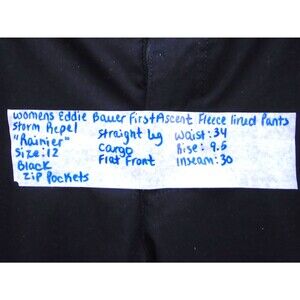 womens Eddie Bauer First Ascent Fleece lined Pants
Storm Repel
"Rainier"
Size: 12
Black
Zip Pockets
Straight leg
Cargo
Flat Front
Waist: 34
Rise: 9.5
Inseam: 30